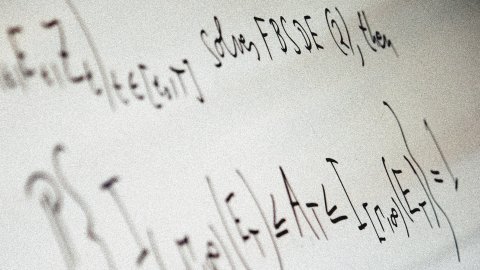 E_t, Z_t)_{t∈[t_0,T]} solves FBSDE (2), then
P{ I_{(Γ,∞)}(E_T) ≤ A_T ≤ I_{[Γ,∞)}(E_T)} = 1,